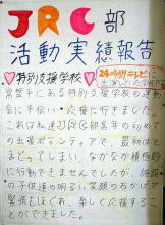 JRC部
活動実績報告
特別支援学校
24時間テレビに
常盤平にある特別支援学校の運動
会に手伝い・応援に行きました。
これはね達JRC部若年の初めて
の出張ボランティアで、最初はと
まどってしまい、なかなか積極的
に行動できませんでしたが、施設
の子供達の明るい笑顔のおかげで
緊張もほぐれ、楽しく応援するこ
とができました。